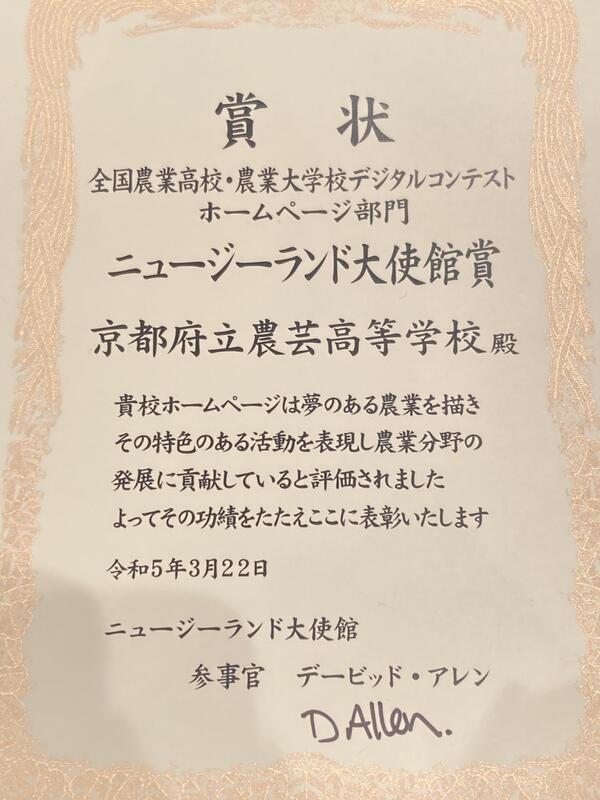 賞状
全国農業高校・農業大学校デジタルコンテスト
ホームページ部門
ニュージーランド大使館賞
京都府立農芸高等学校殿
貴校ホームページは夢のある農業を描き
その特色のある活動を表現し農業分野の
発展に貢献していると評価されました
よってその功績をたたえここに表彰いたします
令和5年3月22日
ニュージーランド大使館
参事官 デービッド・アレン
D Allen.